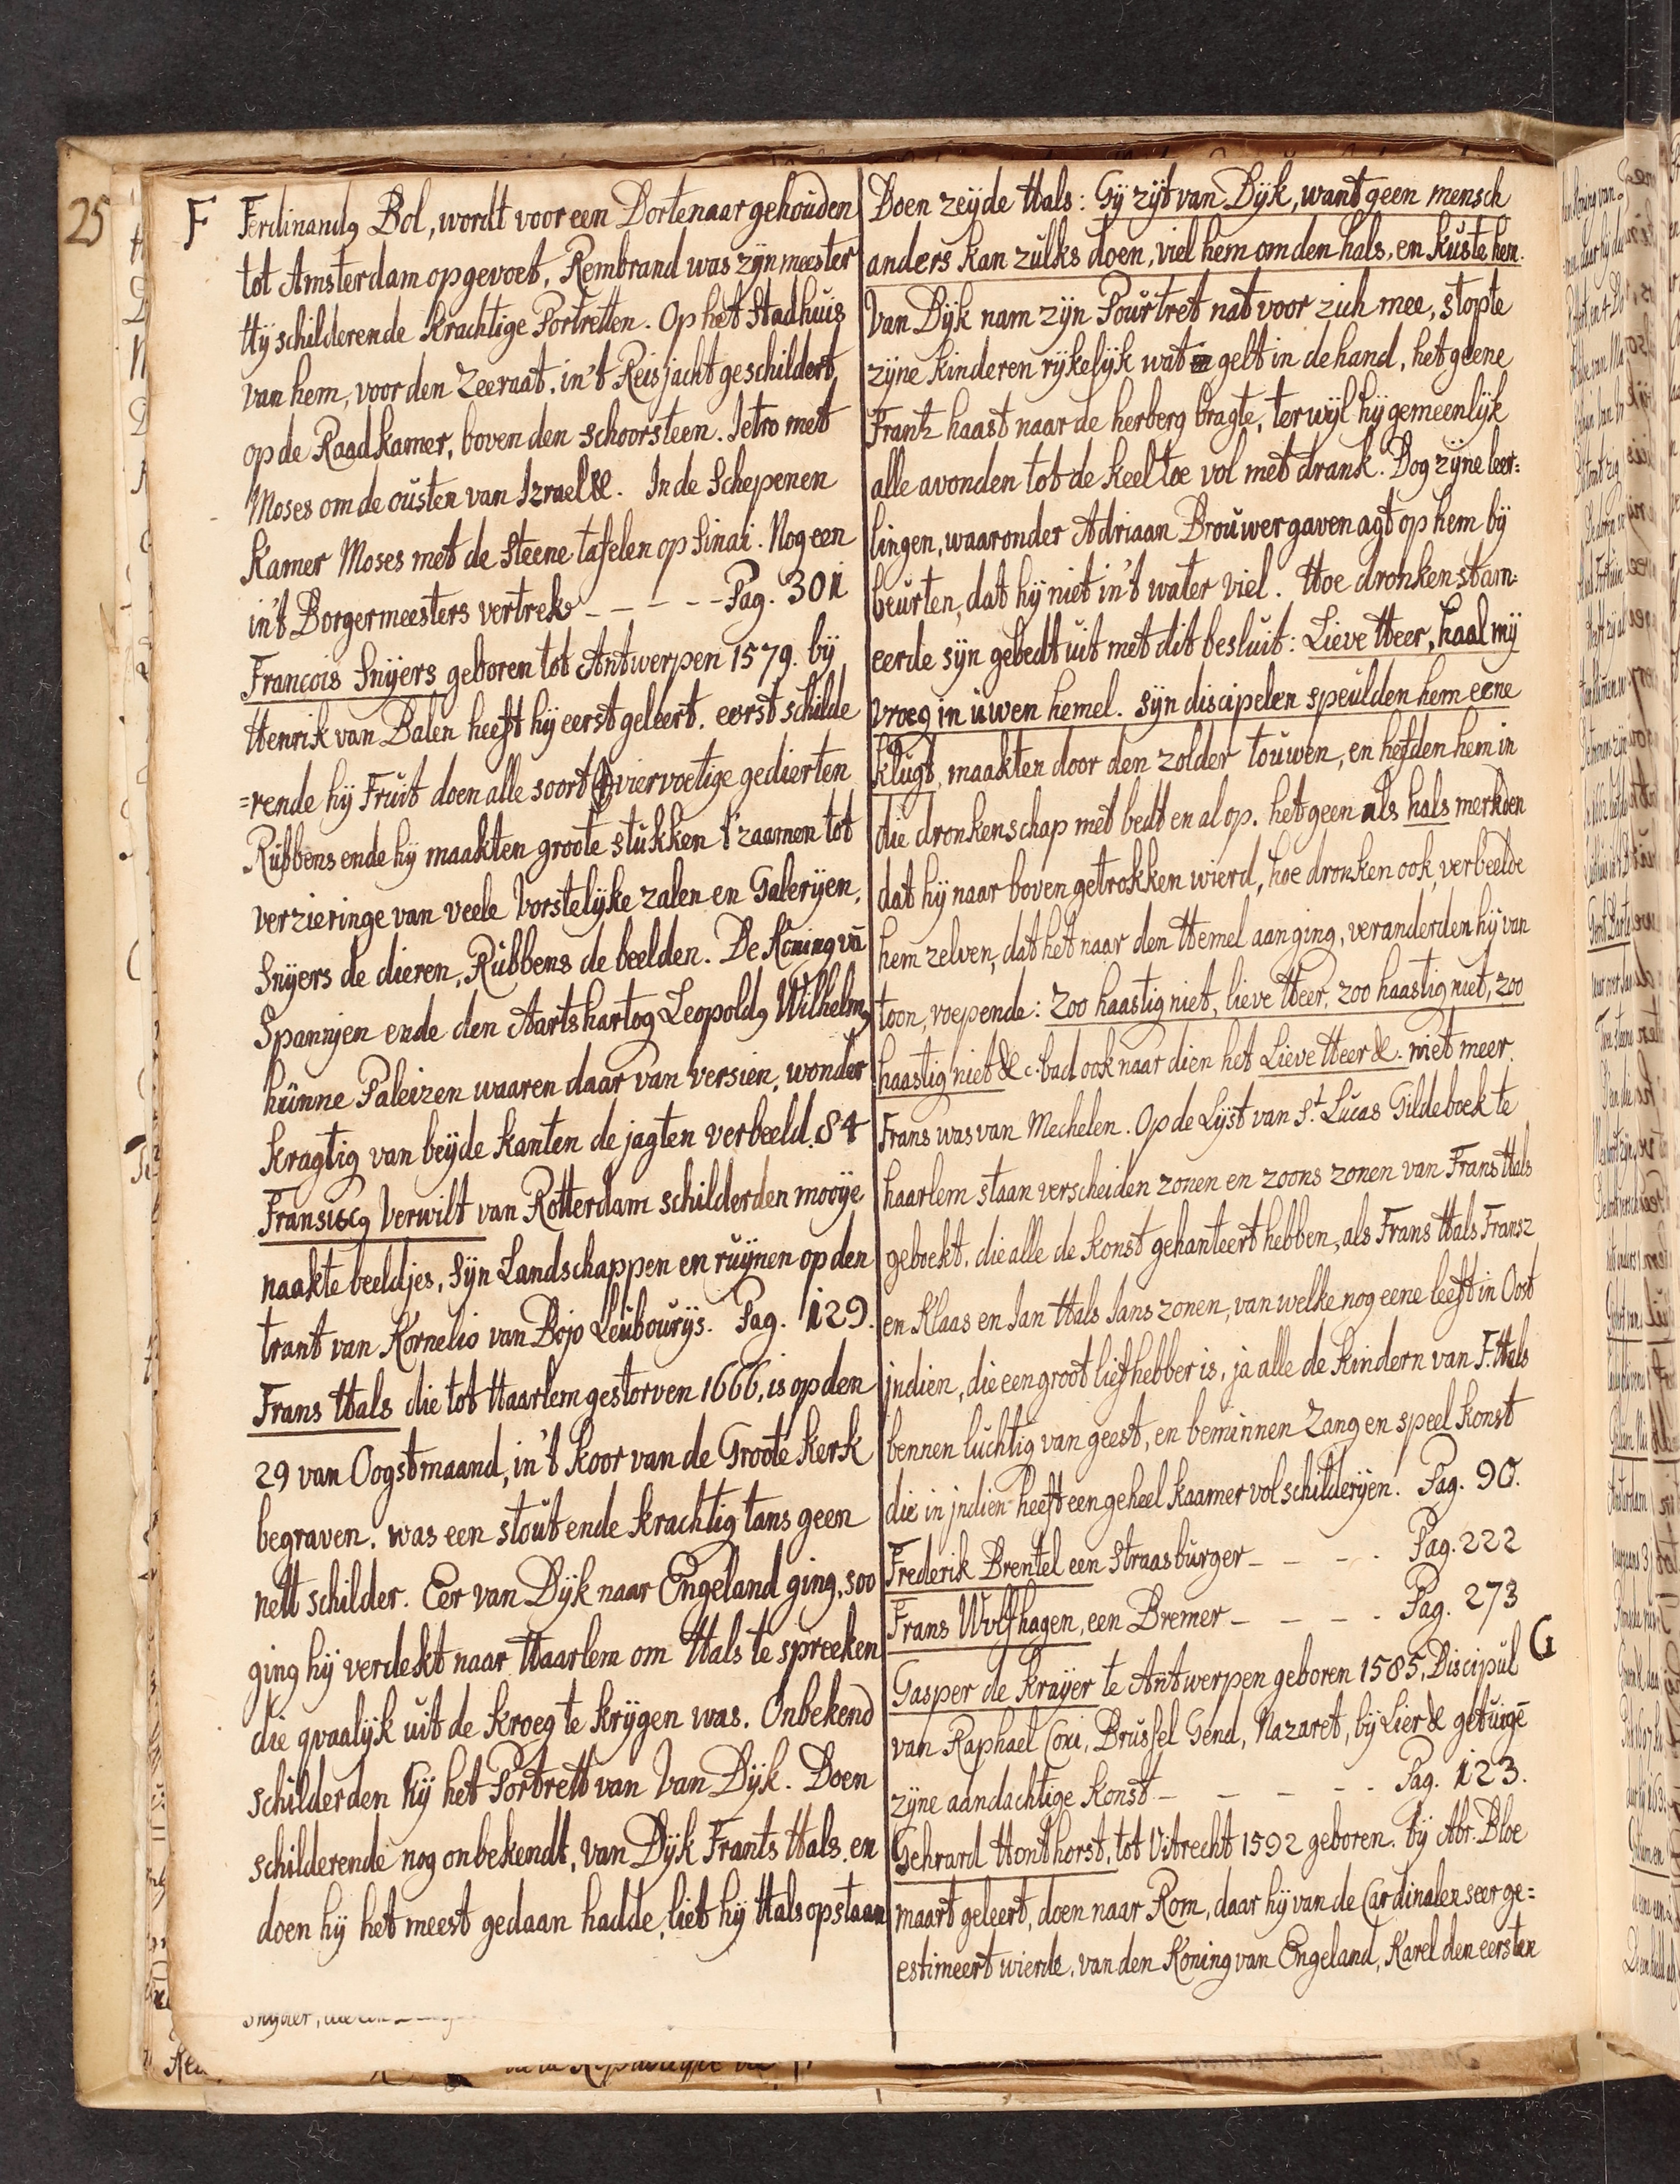 25
F
Ferdinandq Bol, wordt voor een Dortenaar gehouden
tot Amsterdam opgevoet, Rembrand was zijn meester
Hij schilderende krachtige Portretten. Op het Stadhuis
van hem, voor den Zeeraat. in't Reisjacht geschildert,
op de Raadkamer, boven den schoorsteen. Jetro met
Moses om de ousten van Izrael &. In de Schepenen
Kamer Moses met de Steene tafelen op Sinai. Nog een
in't Borgermeesters vertrek - - - - - Pag. 301
Francois Snijers geboren tot Antwerpen 1579. bij
Henrik van Balen heeft hij eerst geleert. eerst schilde
=rende hij Fruit doen alle soort viervoetige gedierten
Rubbens ende hij maakten groote stukken t'zaamen tot
verzieringe van veele Vorstelijke zalen en Galerijen,
Snijers de dieren, Rubbens de beelden. De Koning vā
Spannjen ende den Aartshartog Leopoldq Wilhelmq
hunne Paleizen waaren daar van versien, wonder
kragtig van beijde kanten de jagten verbeeld. 84
Fransiscq Verwilt van Rotterdam schilderden mooije
naakte beeldjes, Sijn Landschappen en ruijnen op den
trant van Kornelio van Bojo Leubourijs. Pag. 129.
Frans Hals die tot Haarlem gestorven 1666, is op den
29 van Oogstmaand, in't koor van de Groote Kerk
begraven. was een stout ende krachtig tans geen
nett schilder. Eer van Dijk naar Engeland ging, soo
ging hij verdekt naar Haarlem om Hals te spreeken
die qvaalijk uit de kroeg te krijgen was. Onbekend
schilderden hij het Portrett van Van Dijk. Doen
schilderende nog onbekendt, van Dijk Frants Hals. en
doen hij het meest gedaan hadde, liet hij Hals opstaan
Doen zeijde Hals: Gij zijt van Dijk, want geen mensch
anders kan zulks doen, viel hem om den hals, en kuste hem.
Van Dijk nam zijn Pourtret nat voor zich mee, stopte
zijne kinderen rijkelijk wat gelt in de hand, het geene
Frantz haast naar de herberg bragte, terwijl hij gemeenlijk
alle avonden tot de keel toe vol met drank. Dog zijne leer=
lingen, waaronder Adriaan Brouwer gaven agt op hem bij
beurten, dat hij niet in't water viel. Hoe dronken stam=
eerde sijn gebedt uit met dit besluit: Lieve Heer, haal mij
vroeg in uwen hemel. Sijn discipelen speulden hem eene
klugt, maakten door den zolder touwen, en hefden hem in
die dronkenschap met bedt en al op. het geen als hals merkden
dat hij naar boven getrokken wierd, hoe dronken ook, verbeelde
hem zelven, dat het naar den Hemel aan ging, veranderden hij van
toon, roepende: Zoo haastig niet, lieve Heer, zoo haastig niet, zoo
haastig niet &c. bad ook naar dien het Lieve Heer &. niet meer.
Frans was van Mechelen. Op de Lijst van St. Lucas Gildeboek te
haarlem staan verscheiden zonen en zoons zonen van Frans Hals
geboekt. die alle de konst gehanteert hebben, als Frans Hals Fransz
en Klaas en Jan Hals Jans zonen, van welke nog eene leeft in Oost
jndien, die een groot liefhebber is, ja alle de kindern van F. Hals
bennen luchtig van geest, en beminnen Zang en speel konst
die in jndien heeft een geheel kaamer vol schilderijen. Pag. 90.
Frederik Brentel een Straasburger - - - - Pag. 222
Frans Wvlfhagen, een Bremer - - - - Pag. 273
G
Gasper de Kraijer te Antwerpen geboren 1585, Discipul
van Raphael Coxi, Brussel Gend, Nazaret, bij Lier & getuigē
zijne aandachtige konst - - - - - Pag. 123.
Gehrard Honthorst, tot Vitrecht 1592 geboren. bij Abr. Bloe
maart geleert, doen naar Rom, daar hij van de Cardinalen seer ge=
estimeert wierde, van den Koning van Engeland, Karel den eersten